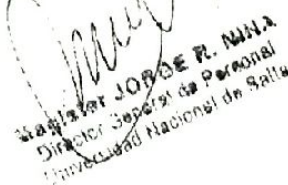 Magister JORGE R. NINA
Director General de Personal
Universidad Nacional de Salta